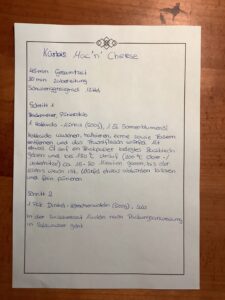 Kürbis Mac 'n' Cheese
45min Gesamtzeit
30 min Zubereitung
Schwierigkeitsgrad Mittel
Schritt 1
1 Hokkaido -Kürbis (500g), 1 EL Sonnenblumenöl
Hokkaido waschen, halbieren, Kerne sowie Fasern
entfernen und das Fruchtfleisch würfeln. Mit
etwas Öl auf ein Backpapier belegtes Backblech
geben und bei 180°C Umluft (200°C Ober- /
Unterhitze) ca. 25 - 30 Minuten garen bis der
Kürbis weich ist. etwas abkühlen lassen
und fein pürieren
Schritt 2
1 Dinkel - (500g), Salz
In der Zwischenzeit Nudeln nach Packungsanweisung
in Salzwasser